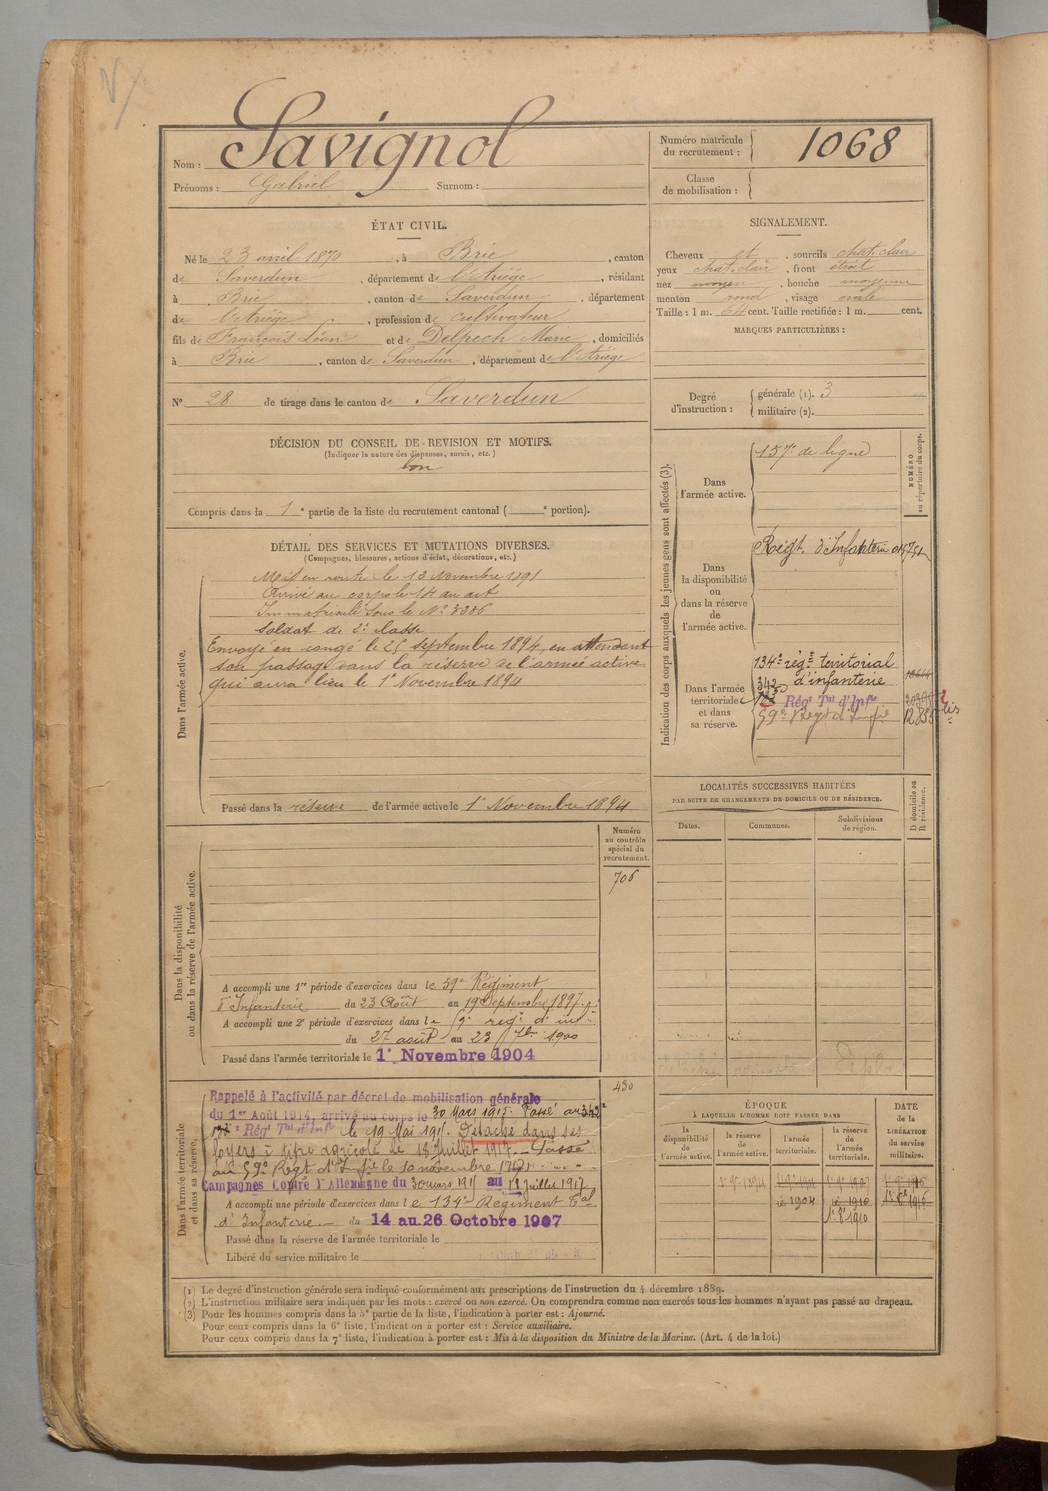 Nom : Savignol
Prénoms : Gabriel Surnom :
Numéro matricule
du recrutement : 1068
Classe
de mobilisation :
ÉTAT CIVIL.
Né le 23 avril 1870, à Brie, canton
de Saverdun, département de l'Ariège, résidant
à Brie, canton de Saverdun, département
de l'Ariège, profession de cultivateur
fils de François Léon et de Delpech Marie, domiciliés
à Brie, canton de Saverdun, département de l'Ariège
N° 28 de tirage dans le canton de Saverdun
SIGNALEMENT.
Cheveux et, sourcils chat. clair
yeux chat. clair, front étroit
nez moyen, bouche moyenne
menton rond, visage ovale
Taille : 1 m. 64 cent. Taille rectifiée : 1 m. cent.
MARQUES PARTICULIÈRES :
Degré
d'instruction :
générale (1). 3
militaire (2).
DÉCISION DU CONSEIL DE REVISION ET MOTIFS.
(Indiquer la nature des dispenses, sursis, etc.)
bon
Compris dans la 1e partie de la liste du recrutement cantonal ( e portion).
DÉTAIL DES SERVICES ET MUTATIONS DIVERSES.
(Campagnes, blessures, actions d'éclat, décorations, etc.)
Dans l'armée active.
Mis en route le 13 Novembre 1891
Arrivé au corps le 14 au dit
Immatriculé sous le N° 3386
Soldat de 2e classe
Envoyé en congé le 25 septembre 1894, en attendant
son passage dans la réserve de l'armée active
qui aura lieu le 1er Novembre 1894
Passé dans la réserve de l'armée active le 1er Novembre 1894
Indication des corps auxquels les jeunes gens sont affectés (3).
NUMÉRO
au répertoire du corps.
Dans
l'armée active.
157e de ligne
Dans
la disponibilité
ou
dans la réserve
de
l'armée active.
Régt d'Infanterie
Dans l'armée
territoriale
et dans
sa réserve.
134e régt territorial
d'infanterie
342
Régt Tal d'Infie
59e Régt d'Infie
LOCALITÉS SUCCESSIVES HABITÉES
PAR SUITE DE CHANGEMENTS DE DOMICILE OU DE RÉSIDENCE.
Dates.
Communes.
Subdivisions
de région.
D domicile ou
R résidence.
Numéro
au contrôle
spécial du
recrutement.
706
Dans la disponibilité
ou dans la réserve de l'armée active.
A accompli une 1re période d'exercices dans le 59e Régiment
d'Infanterie du 23 Août au 19 Septembre 1897
A accompli une 2e période d'exercices dans le 59e régt d'inf
du 27 août au 23 7bre 1900
Passé dans l'armée territoriale le 1er Novembre 1904
430
Dans l'armée territoriale
et dans sa réserve.
Rappelé à l'activité par décret de mobilisation générale
du 1er Août 1914, arrivé au corps le 30 Mars 1915. Passé au 342e
Régt Tal d'Infie le 19 Mai 1915. Détaché dans ses
foyers à titre agricole le 18 Juillet 1917. Passé
au 59e Régt d'Infie le 10 novembre 1917
Campagnes Contre l'Allemagne du 30 mars 1915 au 18 Juillet 1917
A accompli une période d'exercices dans le 134e Régiment Tal
d'Infanterie du 14 au 26 Octobre 1907
Passé dans la réserve de l'armée territoriale le
Libéré du service militaire le
ÉPOQUE
À LAQUELLE L'HOMME DOIT PASSER DANS
DATE
de la
LIBÉRATION
du service
militaire.
la
disponibilité
de
l'armée active.
la réserve
de
l'armée active.
l'armée
territoriale.
la réserve
de
l'armée
territoriale.
1904
1910
1916
1910
(1) Le degré d'instruction générale sera indiqué conformément aux prescriptions de l'instruction du 4 décembre 1889.
(2) L'instruction militaire sera indiquée par les mots : exercé ou non exercé. On comprendra comme non exercés tous les hommes n'ayant pas passé au drapeau.
(3) Pour les hommes compris dans la 5e partie de la liste, l'indication à porter est : Ajourné.
Pour ceux compris dans la 6e liste, l'indication à porter est : Service auxiliaire.
Pour ceux compris dans la 7e liste, l'indication à porter est : Mis à la disposition du Ministre de la Marine. (Art. 4 de la loi.)